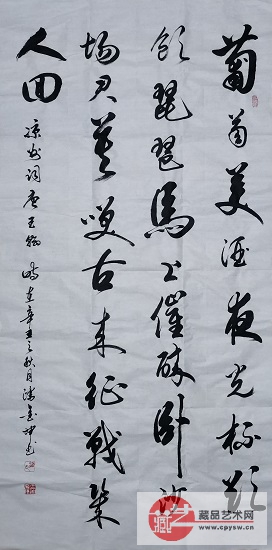 葡萄美酒夜光杯欲
飲琵琶馬上催醉卧沙
場君莫笑古来征戰幾
人回
凉州词唐王翰 時在辛丑之秋月
藏品艺术网
www.cpysw.cn